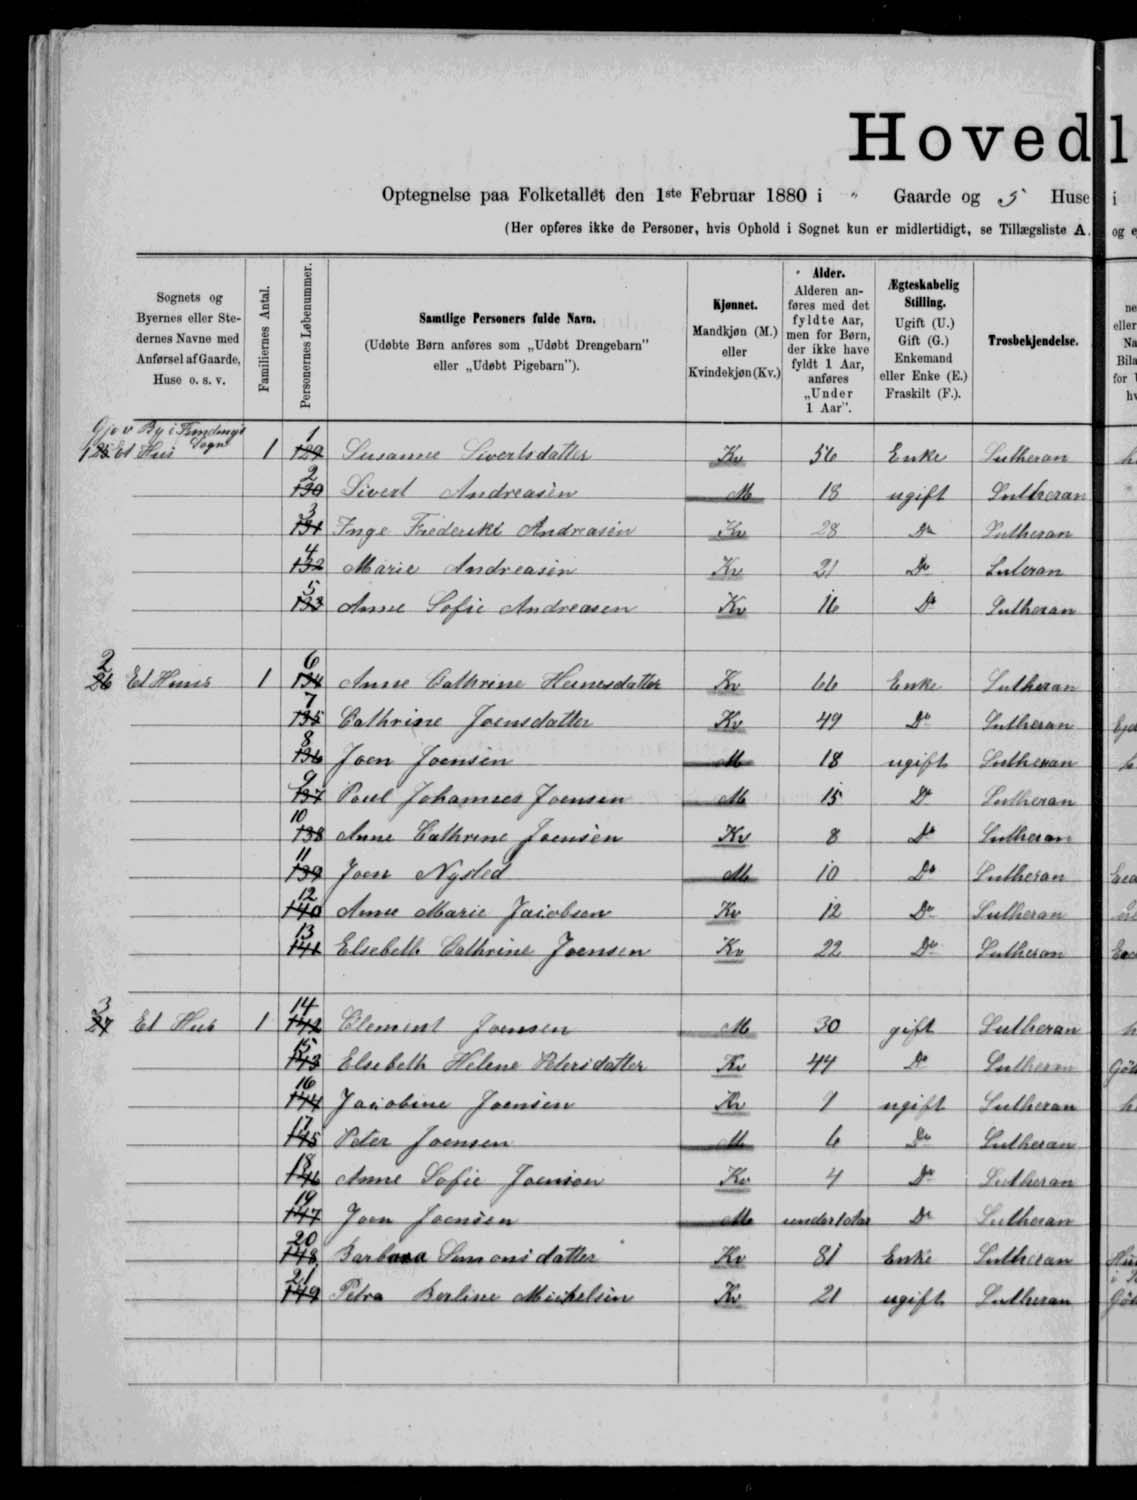 Hovedl
Optegnelse paa Folketallet den 1ste Februar 1880 i " Gaarde og 5 Huse i
(Her opføres ikke de Personer, hvis Ophold i Sognet kun er midlertidigt, se Tillægsliste A. og e
Sognets og Byernes eller Stedernes Navne med Anførsel af Gaarde, Huse o. s. v.
Familiernes Antal.
Personernes Løbenummer.
Samtlige Personers fulde Navn.
(Udøbte Børn anføres som „Udøbt Drengebarn" eller „Udøbt Pigebarn").
Kjønnet.
Mandkjøn (M.) eller Kvindekjøn (Kv.)
Alder.
Alderen anføres med det fyldte Aar, men for Børn, der ikke have fyldt 1 Aar, anføres „Under 1 Aar".
Ægteskabelig Stilling.
Ugift (U.) Gift (G.) Enkemand eller Enke (E.) Fraskilt (F.).
Trosbekjendelse.
Gjov By i Funding's Sogn
1 25 Et Hus 1 1 129 Susanne Sivertsdatter Kv 56 Enke Lutheran
2 130 Sivert Andreasen M 18 ugift Lutheran
3 131 Inge Frederikke Andreasen Kv 28 Do Lutheran
4 132 Marie Andreasen Kv 21 Do Luteran
5 133 Anne Sofie Andreasen Kv 16 Do Lutheran
2 26 Et Huus 1 6 134 Anne Cathrine Heinesdatter Kv 66 Enke Lutheran
7 135 Cathrine Joensdatter Kv 49 Do Lutheran
8 136 Joen Joensen M 18 ugift Lutheran
9 137 Poul Johannes Joensen M 15 Do Lutheran
10 138 Anne Cathrine Joensen Kv 8 Do Lutheran
11 139 Joen Nysted M 10 Do Lutheran
12 140 Anne Marie Jacobsen Kv 12 Do Lutheran
13 141 Elsebeth Cathrine Joensen Kv 22 Do Lutheran
3 27 Et Hus 1 14 142 Clement Joensen M 30 gift Lutheran
15 143 Elsebeth Helene Petersdatter Kv 44 Do Lutheran
16 144 Jacobine Joensen Kv ugift Lutheran
17 145 Peter Joensen M 6 Do Lutheran
18 146 Anne Sofie Joensen Kv 4 Do Lutheran
19 147 Joen Joensen M under 1 Aar Do Lutheran
20 148 Barbara Simonsdatter Kv 81 Enke Lutheran
21 149 Petra Berline Mickelsen Kv 21 ugift Lutheran